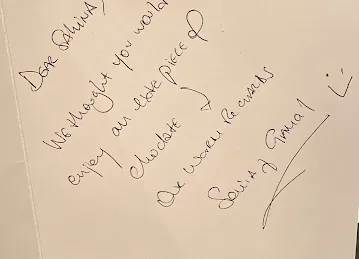 DEAR SABINA,
We thought you would
enjoy an piece of
chocolate
Our warm Regards